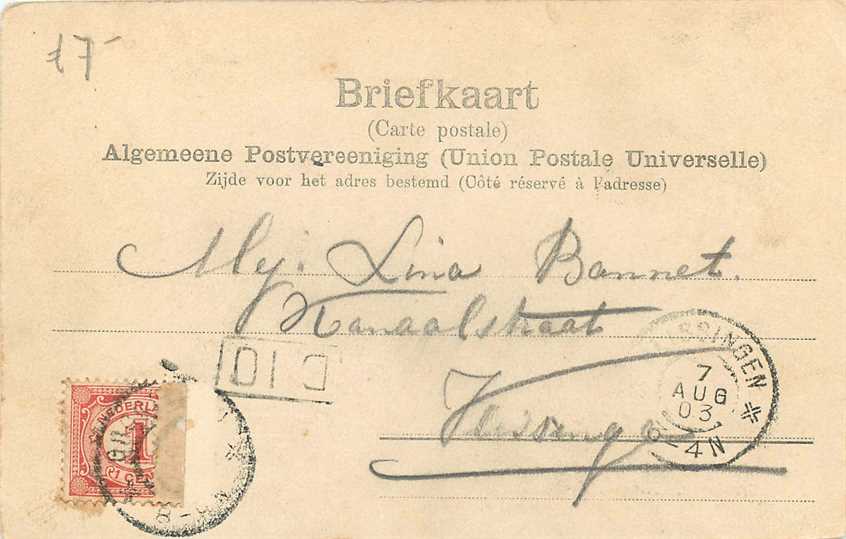 17-
Briefkaart
(Carte postale)
Algemeene Postvereeniging (Union Postale Universelle)
Zijde voor het adres bestemd (Côté réservé à l'adresse)
Mej. Lina Bannet.
Kanaalstraat
C 10
SSINGEN
7
AUG
03
-4N
NEDERLAN
1
8-